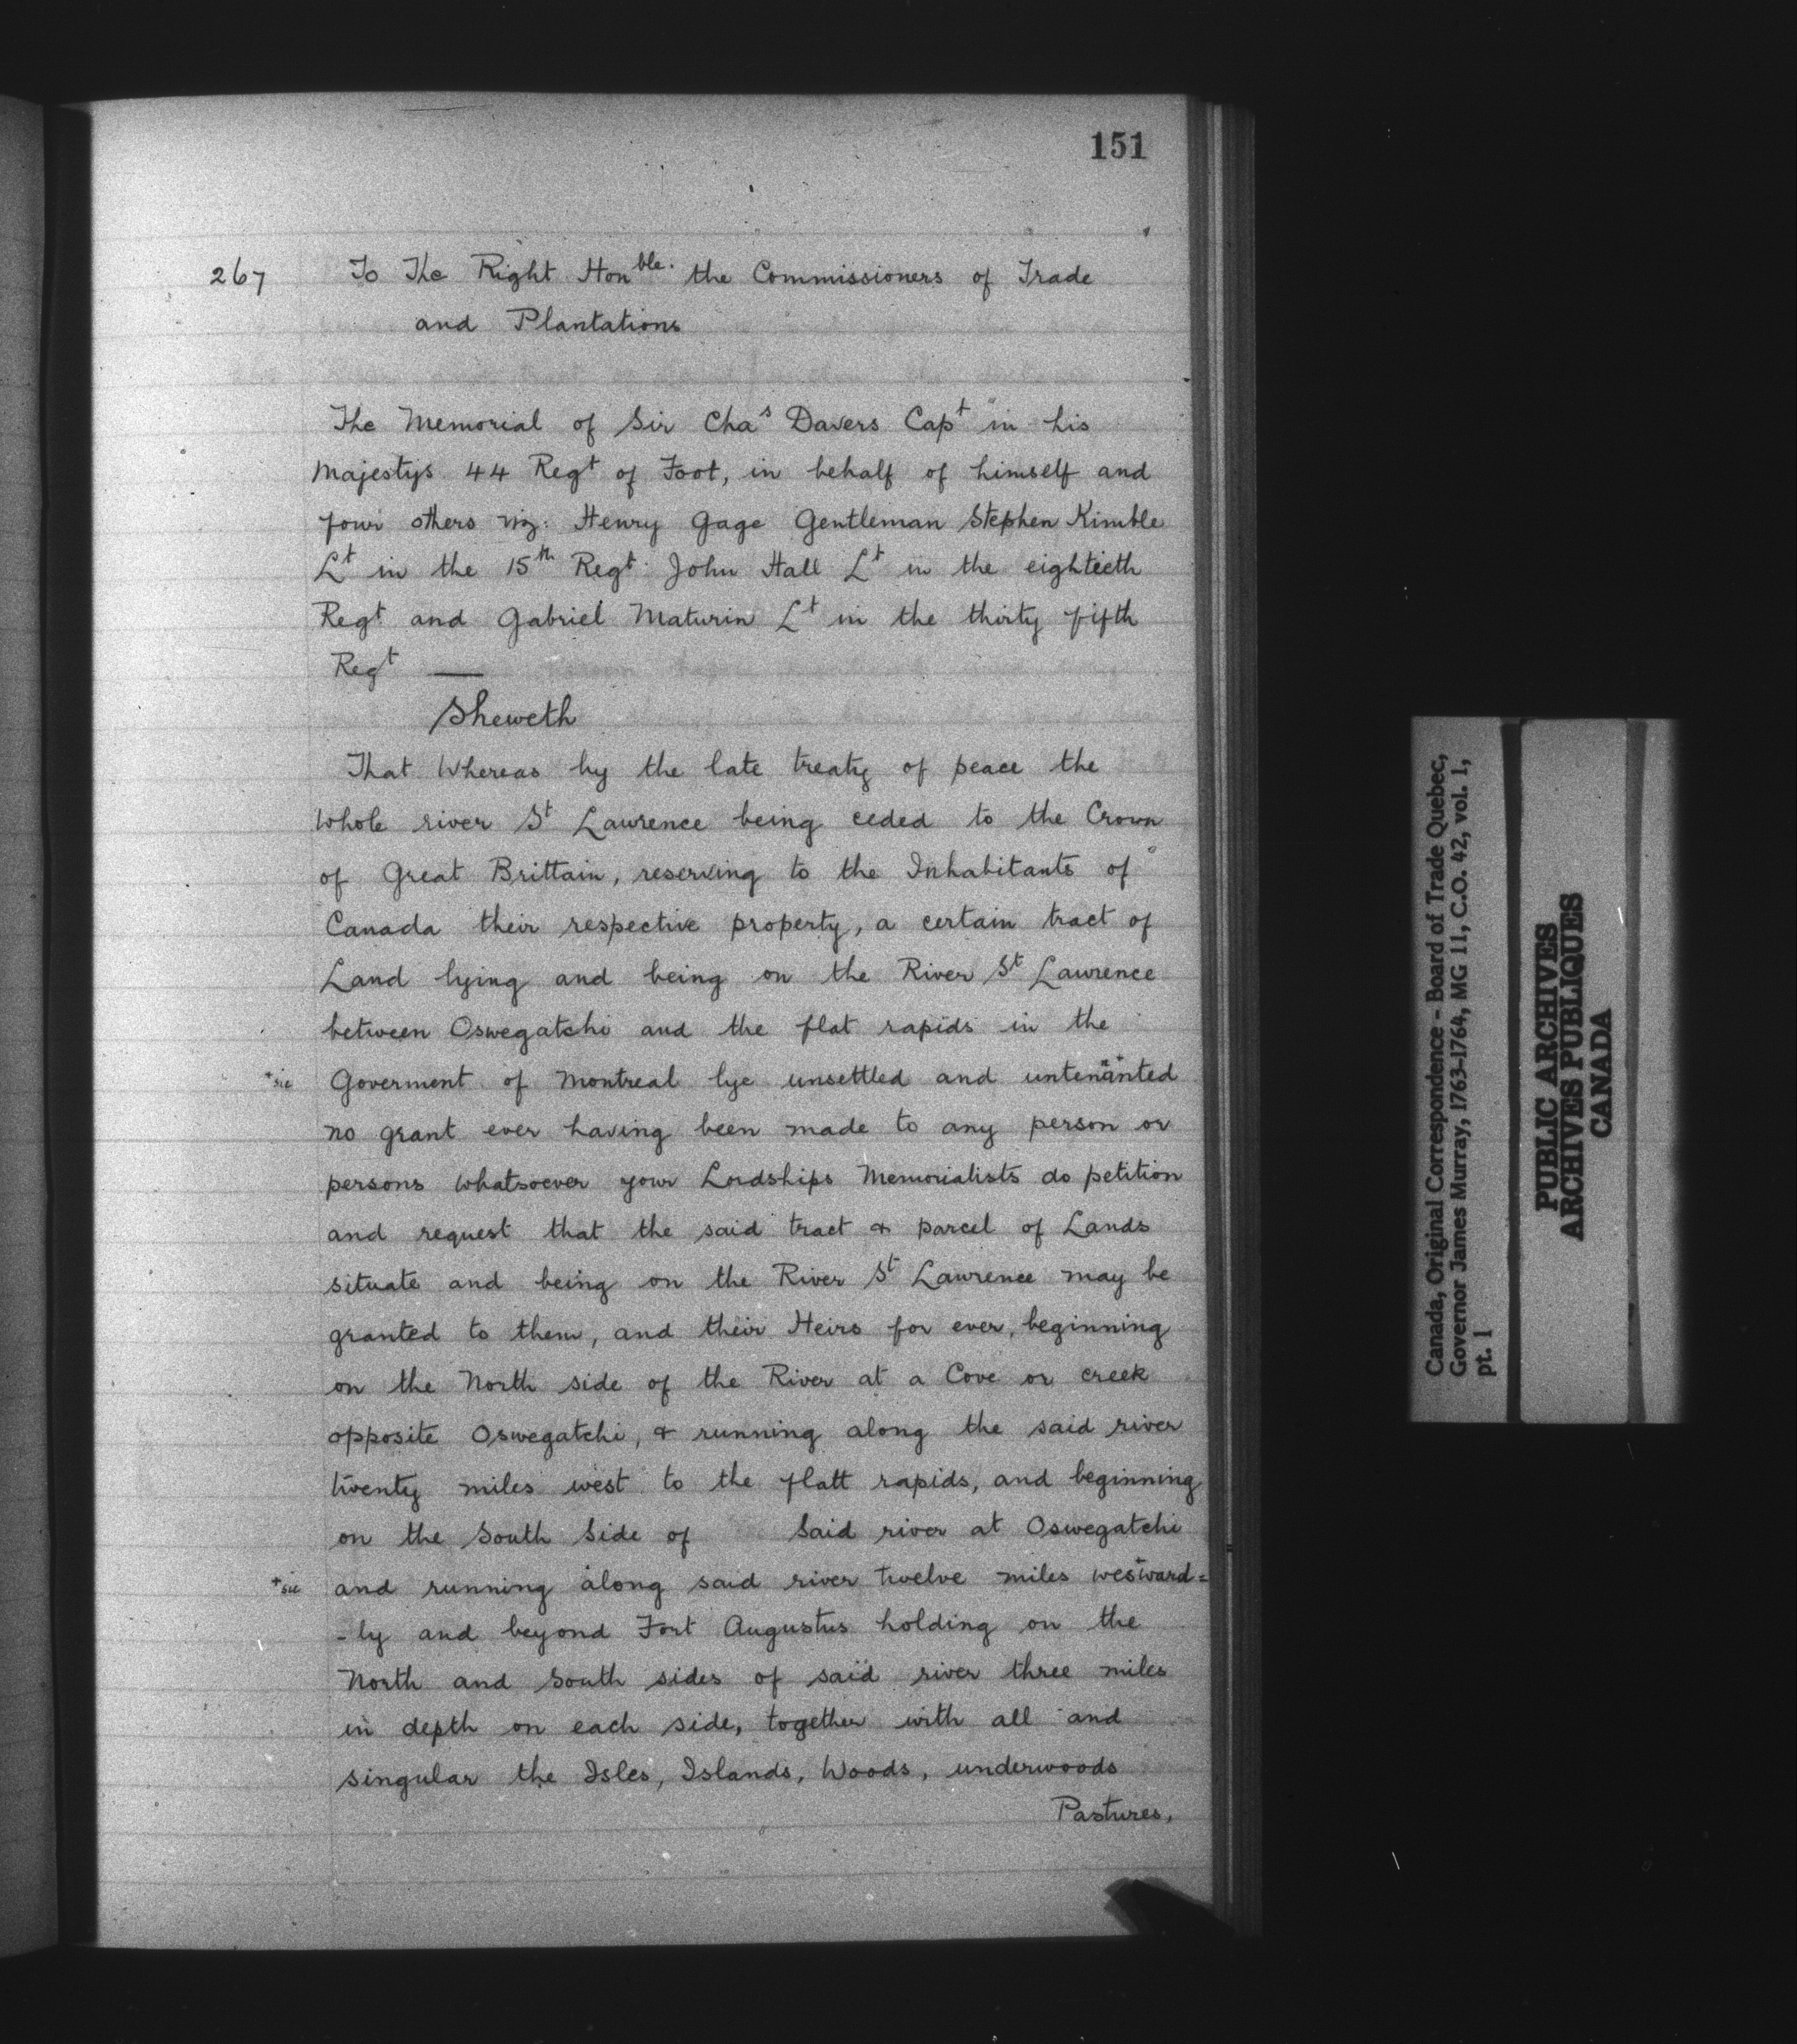 151
267 To The Right Honble. the Commissioners of Trade
and Plantations
The Memorial of Sir Chas Davers Capt in his
Majestys 44 Regt of Foot, in behalf of himself and
four others viz: Henry Gage Gentleman Stephen Kimble
Lt in the 15th Regt John Hall Lt in the eightieth
Regt and Gabriel Maturin Lt in the thirty fifth
Regt —
Sheweth
That Whereas by the late treaty of peace the
Whole river St Lawrence being ceded to the Crown
of Great Brittain, reserving to the Inhabitants of
Canada their respective property, a certain tract of
Land lying and being on the River St Lawrence
between Oswegatchi and the flat rapids in the
+sic Goverment of Montreal lye unsettled and untenanted
no grant ever having been made to any person or
persons whatsoever your Lordships Memorialists do petition
and request that the said tract & parcel of Lands
situate and being on the River St Lawrence may be
granted to them, and their Heirs for ever, beginning
on the North side of the River at a Cove or creek
opposite Oswegatchi, & running along the said river
twenty miles west to the flatt rapids, and beginning
on the South Side of Said river at Oswegatchi
+sic and running along said river twelve miles wes+ward=
-ly and beyond Fort Augustus holding on the
North and South sides of said river three miles
in depth on each side, together with all and
singular the Isles, Islands, Woods, underwoods
Pastures,
Canada, Original Correspondence - Board of Trade Quebec,
Governor James Murray, 1763-1764, MG 11, C.O. 42, vol. 1,
pt. 1
PUBLIC ARCHIVES
ARCHIVES PUBLIQUES
CANADA